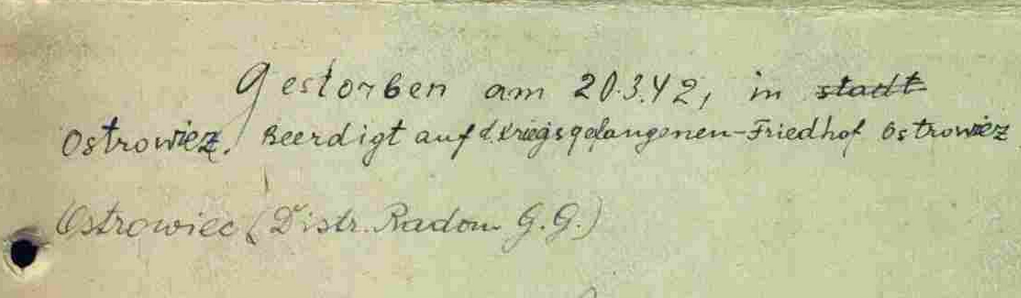 Gestorben am 20.3.42, in stadt
Ostrowiez. Beerdigt auf d. Kriegsgefangenen-Friedhof Ostrowiez
Ostrowiec (Distr. Radom G.G.)